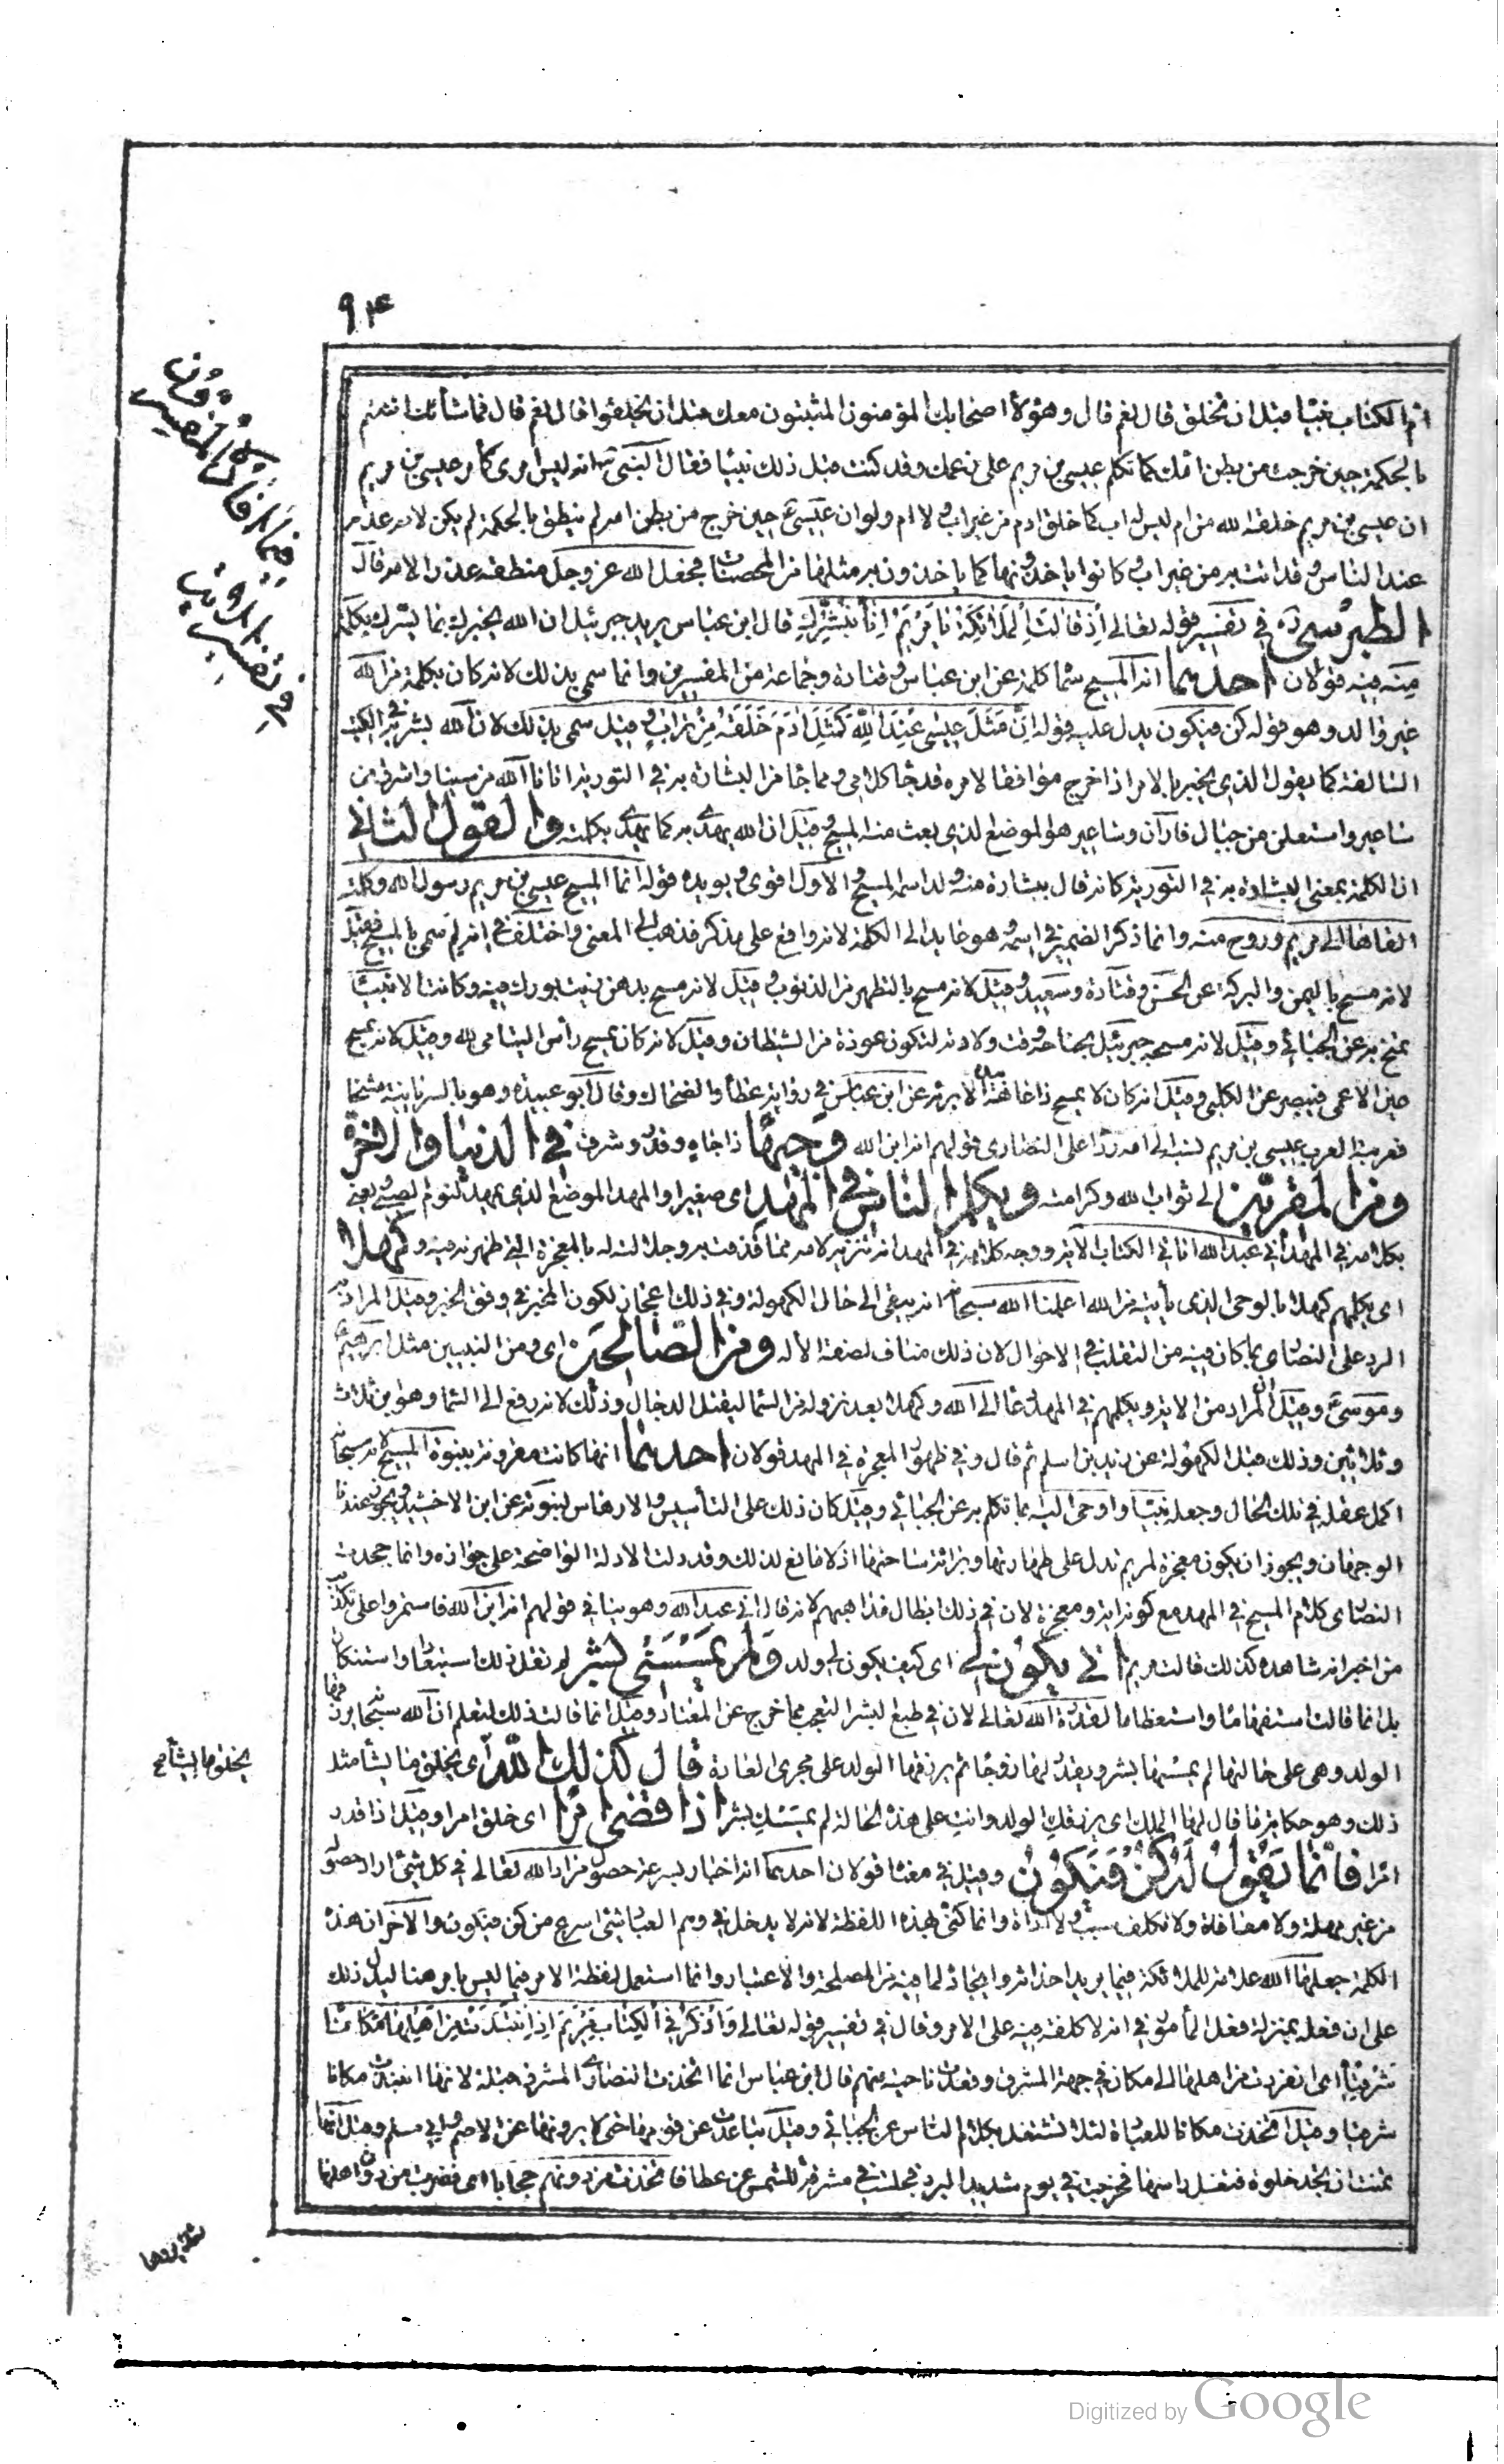 ٩٣
فيما أفاده المفسرون
في تفسير الآيات
ام الكتاب نبيا قبل ان تخلق قال نعم قال وهؤلاء اصحابك المؤمنون المثبتون معك قبل ان يخلقوا قال نعم قال فما شأنك لم تتكلم
بالحكمة حين خرجت من بطن امك كما تكلم عيسى بن مريم على زعمك وقد كنت قبل ذلك نبيا فقال النبي انه ليس امري كأمر عيسى بن مريم
ان عيسى بن مريم خلقه الله من ام ليس له اب كما خلق ادم من غير اب ولا ام ولو ان عيسى حين خرج من بطن امه لم ينطق بالحكمة لم يكن لامه عذر
عند الناس وقد اتت به من غير اب وكانوا ياخذونها كما ياخذون به مثلها من المحصنات فجعل الله عز وجل منطقه عذرا لامه قال
الطبرسي في تفسير قوله تعالى اذ قالت الملائكة يا مريم ان الله يبشرك قال ابن عباس يريد جبرئيل ان الله يخبرك بما يسرك بكلمة
منه فيه قولان احدهما انه المسيح سماه كلمة عن ابن عباس وقتادة وجماعة من المفسرين وانما سمي بذلك لانه كان بكلمة من الله
غير والد وهو قوله كن فيكون يدل عليه قوله ان مثل عيسى عند الله كمثل ادم خلقه من تراب وقيل سمي بذلك لان الله بشر به في الكتب
السالفة كما يقول الذي يخبر بالامر اذا خرج موافقا لامره قد جاء كلامي ومما جاء من البشارة به في التورية اتانا الله من سينا واشرق من
ساعير واستعلن من جبال فاران وساعير هو الموضع الذي بعث منه المسيح وقيل ان الله يهدي به كما يهدي بكلمته والقول الثاني
ان الكلمة بمعنى البشارة به في التورية كانه قال ببشارة منه ولد اسمه المسيح والاول اقوى ويؤيده قوله انما المسيح عيسى بن مريم رسول الله وكلمته
القاها الى مريم وروح منه وانما ذكر الضمير في اسمه وهو عايد الى الكلمة لانه واقع على مذكر فذهب الى المعنى واختلف في انه لم سمي بالمسيح فقيل
لانه مسح باليمن والبركة عن الحسن وقتادة وسعيد وقيل لانه مسح بالتطهر من الذنوب وقيل لانه مسح بدهن زيت بورك فيه وكانت الانبياء
تمسح به عن الجبائي وقيل لانه مسحه جبرئيل بجناحه وقت ولادته لتكون عوذة من الشيطان وقيل لانه كان يمسح رأس اليتامى لله وقيل لانه يمسح
عين الاعمى فيبصر عن الكلبي وقيل انه كان لا يمسح ذا عاهة الا برئ عن ابن عباس في رواية عطا والضحاك وقال ابو عبيدة وهو بالسريانية مشيحا
فعربته العرب عيسى بن مريم نسبه الى امه ردا على النصارى قولهم انه ابن الله وجيها ذا جاه وقدر وشرف في الدنيا والاخرة
ومن المقربين الى ثواب الله وكرامته ويكلم الناس في المهد اي صغيرا والمهد الموضع الذي يمهد لنوم الصبي يعني
بكلامه في المهد اني عبد الله اتاني الكتاب الاية ووجه كلامه في المهد انه تنزيه لامه مما قذفت به وجلالة له بالمعجزة التي ظهرت فيه وكهلا
اي يكلمهم كهلا بالوحي الذي يأتيه من الله اعلمنا الله سبحانه انه يبقى الى حال الكهولة وفي ذلك اعجاز لكون المخبر في وفق الخبر وقيل المراد به
الرد على النصارى بما كان فيه من التقلب في الاحوال لان ذلك مناف لصفة الاله ومن الصالحين اي ومن النبيين مثل ابرهيم
وموسى وقيل ان المراد من الاية ويكلمهم في المهد دعاء الى الله وكهلا بعد نزوله من السماء ليقتل الدجال وذلك لانه رفع الى السماء وهو ابن ثلاث
وثلاثين وذلك قبل الكهولة عن زيد بن اسلم ثم قال وفي ظهور المعجزة في المهد قولان احدهما انها كانت مقرونة بنبوة المسيح لانه سبحانه
اكمل عقله في تلك الحال وجعله نبيا واوحى اليه بما تكلم به عن الجبائي وقيل كان ذلك على التأسيس والارهاص لنبوته عن ابن الاخشيد ويجوز عندنا
الوجهان ويجوز ان يكون معجزة لمريم تدل على طهارتها وبرائة ساحتها اذ لا مانع لذلك وقد دلت الادلة الواضحة على جوازه وانما جحدت
النصارى كلام المسيح في المهد مع كونه اية ومعجزة لان في ذلك ابطال مذاهبهم لانه قال اني عبد الله وهو ينافي قولهم انه ابن الله فاستمروا على تكذيب
من اخبر انه شاهده كذلك قالت مريم انى يكون لي اي كيف يكون لي ولد ولم يمسسني بشر لم تقل ذلك استبعادا واستنكارا
بل انما قالت استفهاما واستعظاما لقدرة الله تعالى لان في طبع البشر التعجب مما خرج عن المعتاد وقيل انما قالت ذلك لتعلم ان الله سبحانه يرزقها
الولد وهي على حالتها لم يمسها بشر ويقدر لها زوجا ثم يرزقها الولد على مجرى العادة قال كذلك الله اي يخلق ما يشاء مثل
يخلق ما يشاء
ذلك وهو حكاية ما قال لها الملك اي يرزقك الولد وانت على هذه الحالة لم يمسسك بشر اذا قضى امرا اي خلق امرا وقيل اذا قدر
امرا فانما يقول له كن فيكون وقيل في معناه قولان احدهما انه اخبار بسرعة حصول مراد الله تعالى في كل شيء اراد حصوله
من غير مهلة ولا معاناة ولا تكلف سبب ولا اداة وانما كنى بهذه اللفظة لانه لا يدخل في وهم العباد شيء اسرع من كن فيكون والاخر ان هذه
الكلمة جعلها الله علامة للملائكة فيما يريد احداثه وايجاده لما فيه من المصلحة والاعتبار وانما استعمل لفظة الامر فيما ليس بامر هنا ليدل ذلك
على ان فعله بمنزلة فعل المأمور في انه لا كلفة فيه على الامر وقال في تفسير قوله تعالى واذكر في الكتاب مريم اذ انتبذت من اهلها مكانا
شرقيا اي انفردت من اهلها الى مكان في جهة المشرق وقعدت ناحية منهم قال ابن عباس انما اتخذت النصارى المشرق قبلة لانها انتبذت مكانا
شرقيا وقيل اتخذت مكانا للعبادة لئلا تشتغل بكلام الناس عن الجبائي وقيل تباعدت عن قومها حتى لا يروها عن الاصم وابي مسلم وقيل انها
تمنت ان تجد خلوة فتغسل راسها فخرجت في يوم شديد البرد فجلست في مشرقة للشمس عن عطا فاتخذت من دونهم حجابا اي فضربت من دون اهلها
Digitized by Google